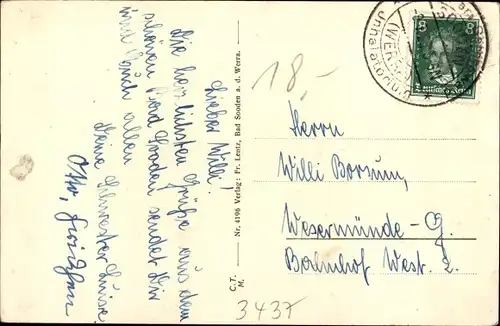 Lieber Willi!
Die herzlichsten Grüße aus dem
schönen Bad Sooden sendet Dir
und Euch allen
Deine Schwester Luise
Otto,
Nr. 4196 Verlag: Fr. Lentz, Bad Sooden a. d. Werra.
C.T.
M.
18,-
3437
8 8
Deutsches Reich
(WERRA)
Herrn
Willi Borsum,
Wesermünde-G.
Bahnhof West. 2.